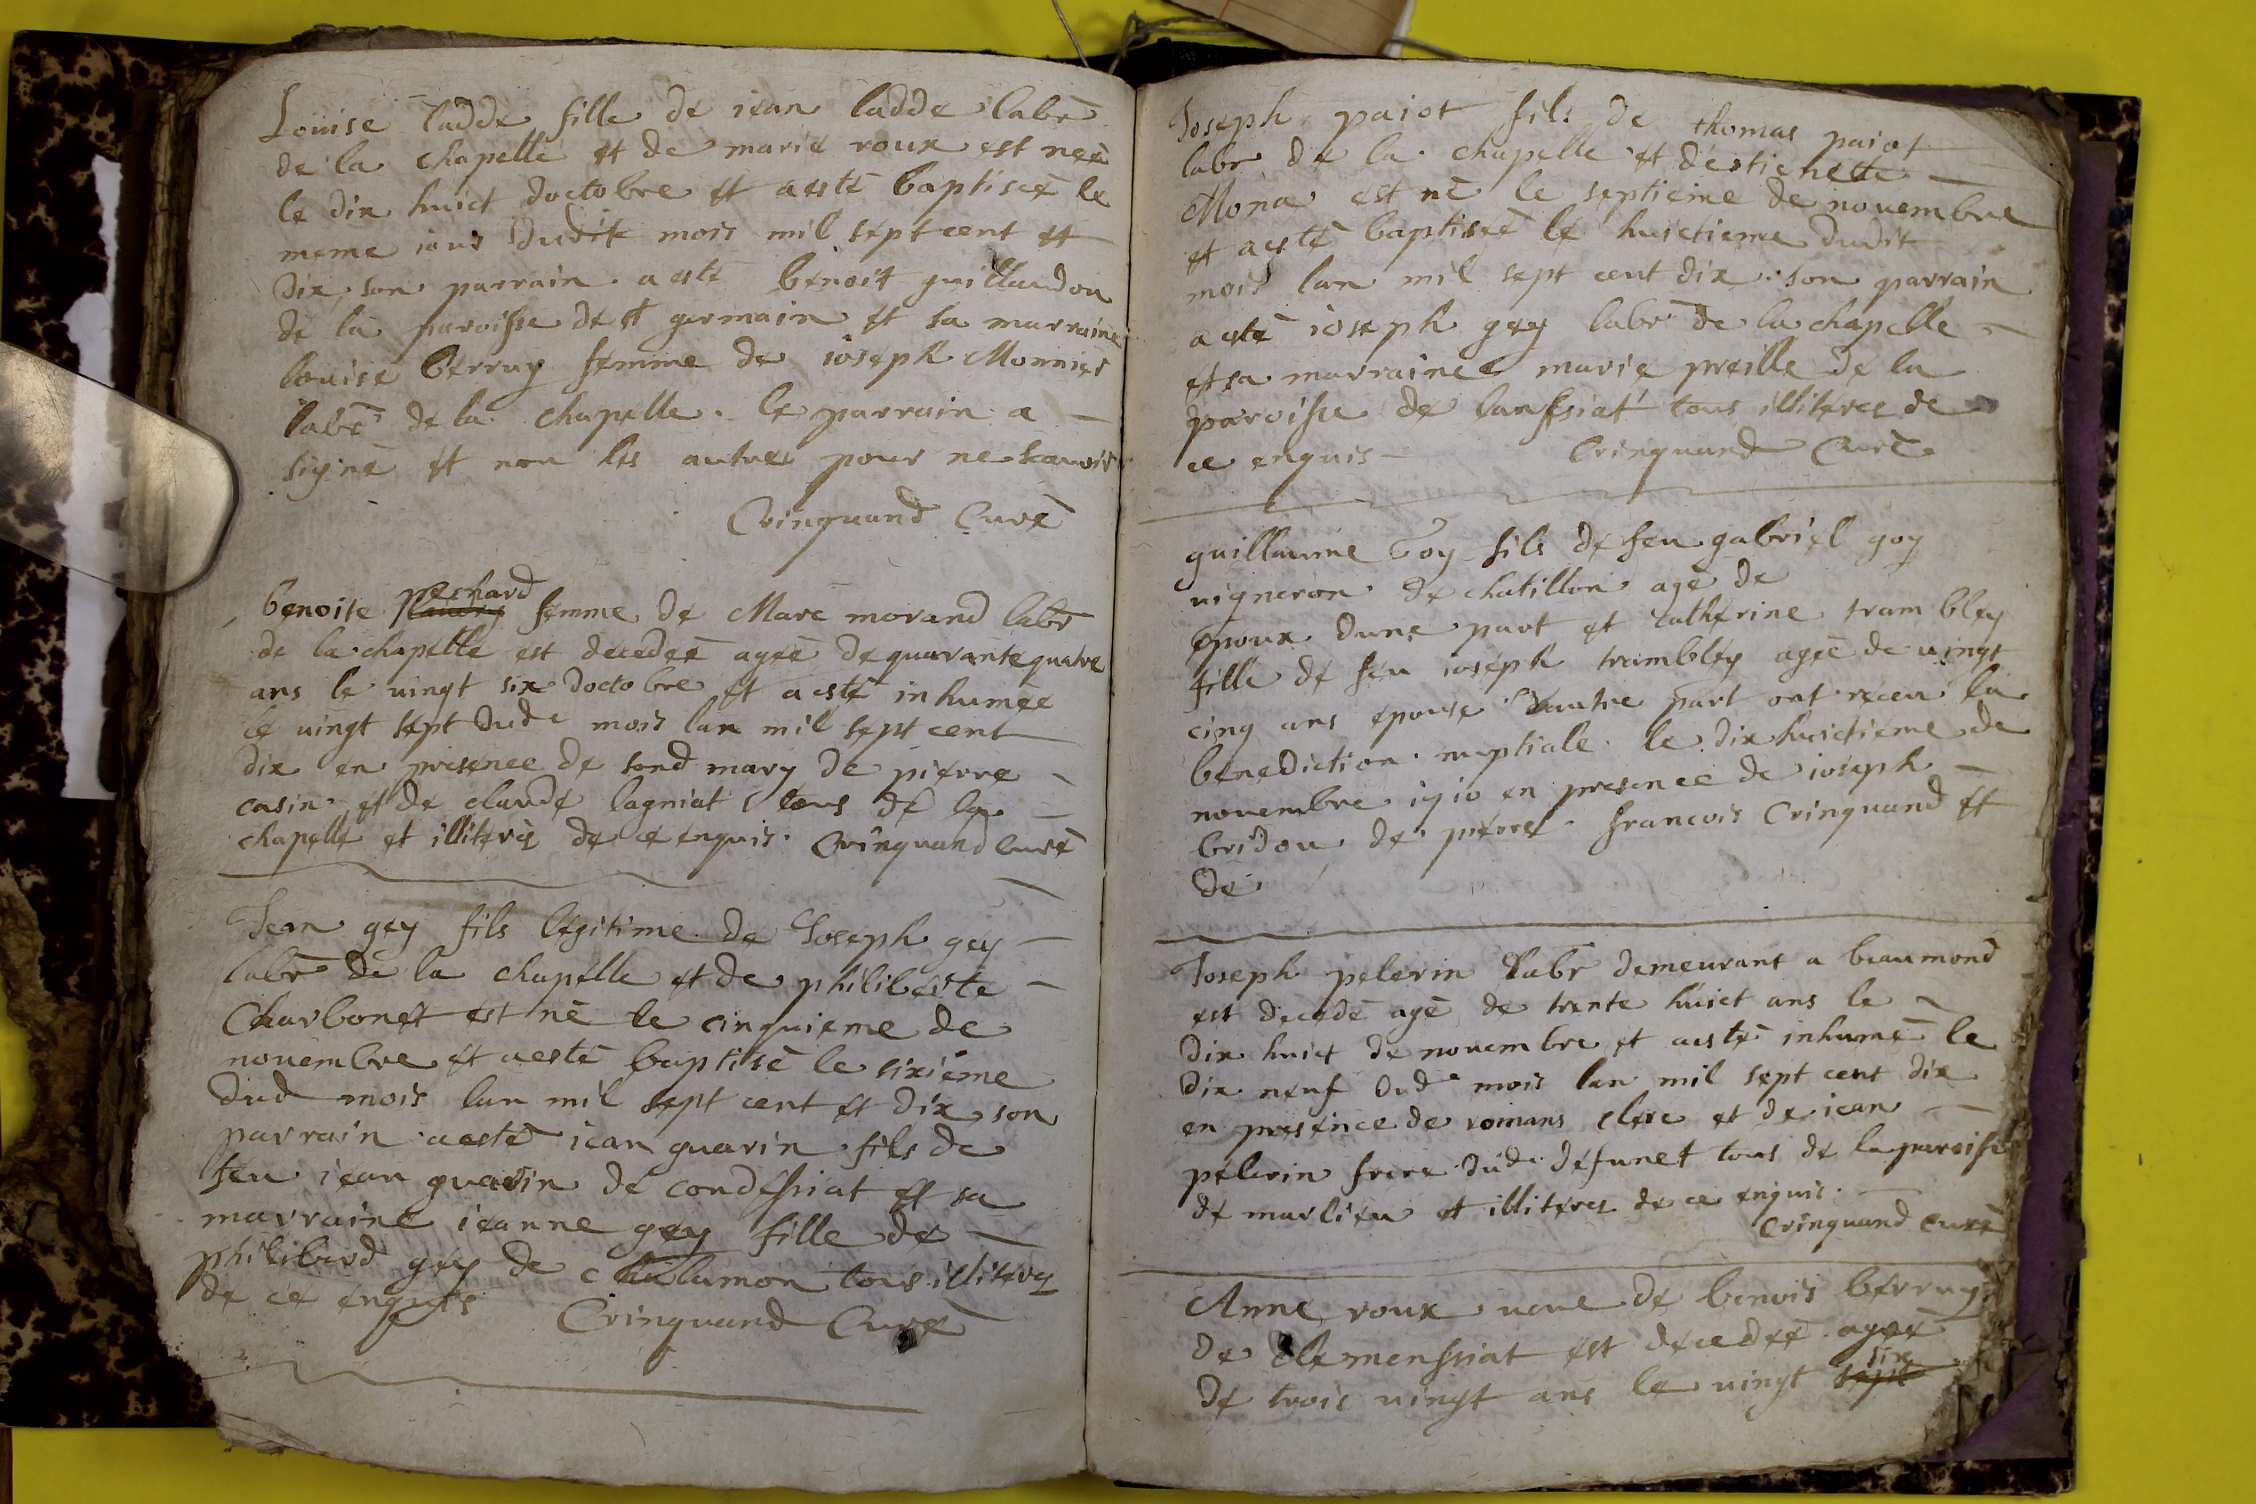 Louise ladde fille de iean ladde labr̄
de la chapelle et de marie roux est neé
le dix huict doctobre et aesté baptiseé le
meme iour dudit mois mil sept cent et
dix, son parrain a esté benoit guillaudon
de la paroisse de st germain et sa marraine
louise berruy femme de ioseph Monnier
labr̄ de la chapelle. le parrain a
signé et non les autres pour ne scauoir
Crinquand Curé
benoite pechard femme de Marc morand labr̄
de la chapelle est decedeé ageé de quarante quatre
ans le uingt six doctobre et a esté inhumeé
le uingt sept dude mois lan mil sept cent
dix en presence de sond mary de pierre
casin et de claude lagniat tous de la
chapelle et illiterés de ce enquis. Crinquand curé
Jean gey fils legitime de Joseph gey
labr̄ de la chapelle et de philiberte
Charbonet est né le cinquieme de
nouembre et aesté baptisé le sixiéme
dud mois lan mil sept cent et dix son
parrain aesté iean guarin fils de
feu iean guarin de condessiat et sa
marraine ieanne gey fille de
philiberd gey de chalamon tous illiterés
de ce enquis Crinquand Curé
Joseph paiot fils de thomas paiot
labr de la chapelle et destienette
Mona est né le septieme de nouembre
et aesté baptiseé le huictieme dudit
mois lan mil sept cent dix son parrain
a esté ioseph gey labr de la chapelle
et sa marraine marie preille de la
paroisse de lanssiat tous illiteres de
ce enquis Crinquand Curé
guillaume Goy fils de feu gabriel goy
uigneron de chatillon agé de
epoux dune part et catherine trambley
fille de feu ioseph trambley ageé de uingt
cinq ans epouse dautre part ont receu la
benediction nuptiale le dix huictieme de
nouembre 1710 en presence de ioseph
bridou de pierre francois Crinquand et
de
Joseph pelerin labr demeurant a beaumond
est decedé agé de trente huict ans le
dix huict de nouembre et aesté inhumé le
dix neuf dude mois lan mil sept cent dix
en presence de romans clerc et de iean
pelerin frere dud defunct tous de la paroisse
de marlieu et illiteres de ce enquis.
Crinquand curé
Anne roux ueue de benois berruy
de clemenssiat est decedeé ageé
de trois uingt ans le uingt sept six